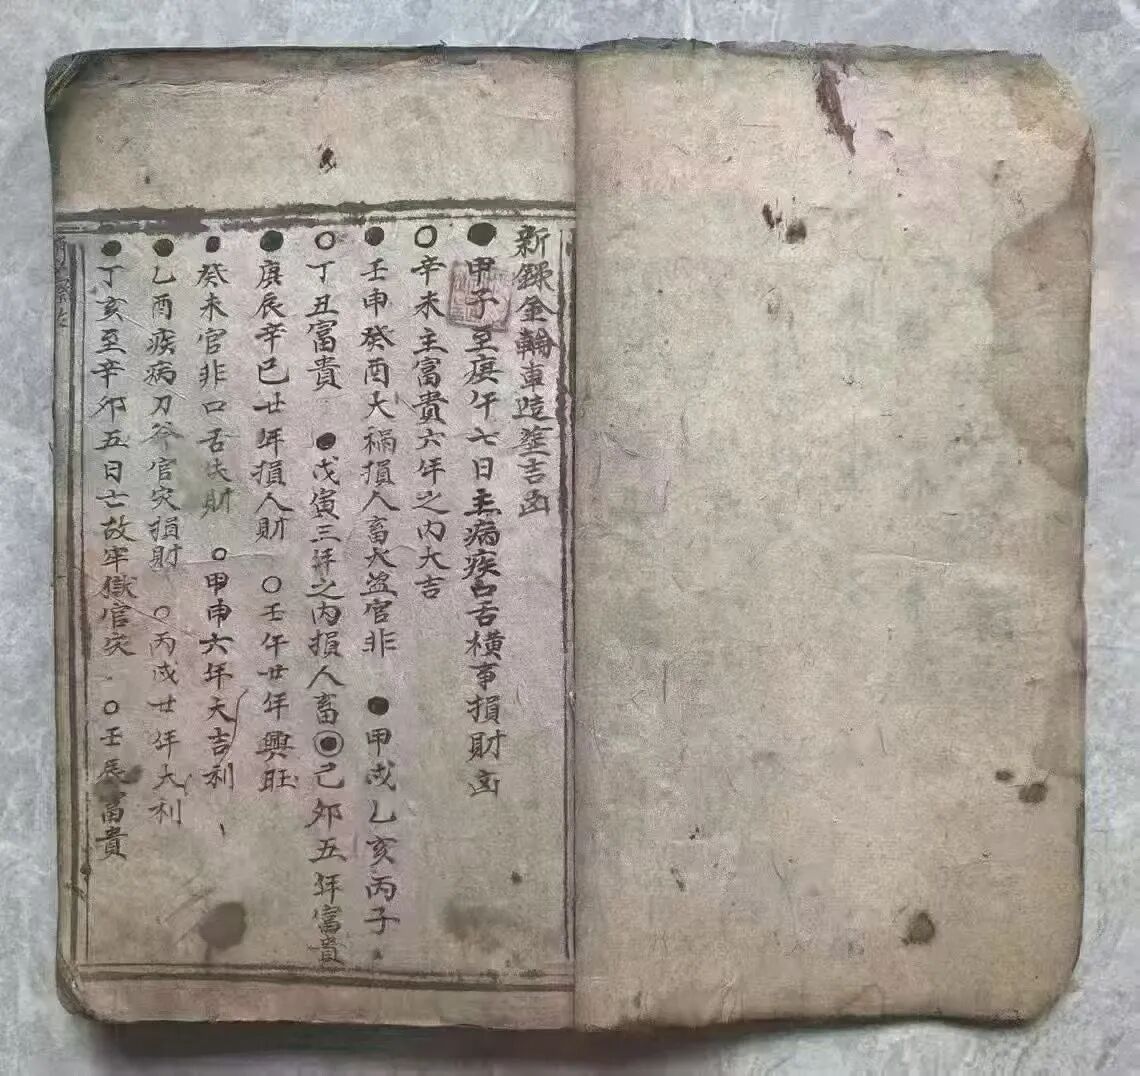 新錄金輪車造塟吉凶
●甲子至庚午七日主病疾口舌橫事損財凶
○辛未主富貴六年之内大吉
●壬申癸酉大禍損人畜火盜官非 ●甲戌乙亥丙子
○丁丑富貴 ●戊寅三年之内損人畜◉己卯五年富貴
●庚辰辛巳廿年損人財 ○壬午廿年興旺
●癸未官非口舌失財 ○甲申六年大吉利
●乙酉疾病刀斧官灾損財 ○丙戌廿年大利
●丁亥至辛卯五日亡故牢獄官灾 ○壬辰富貴